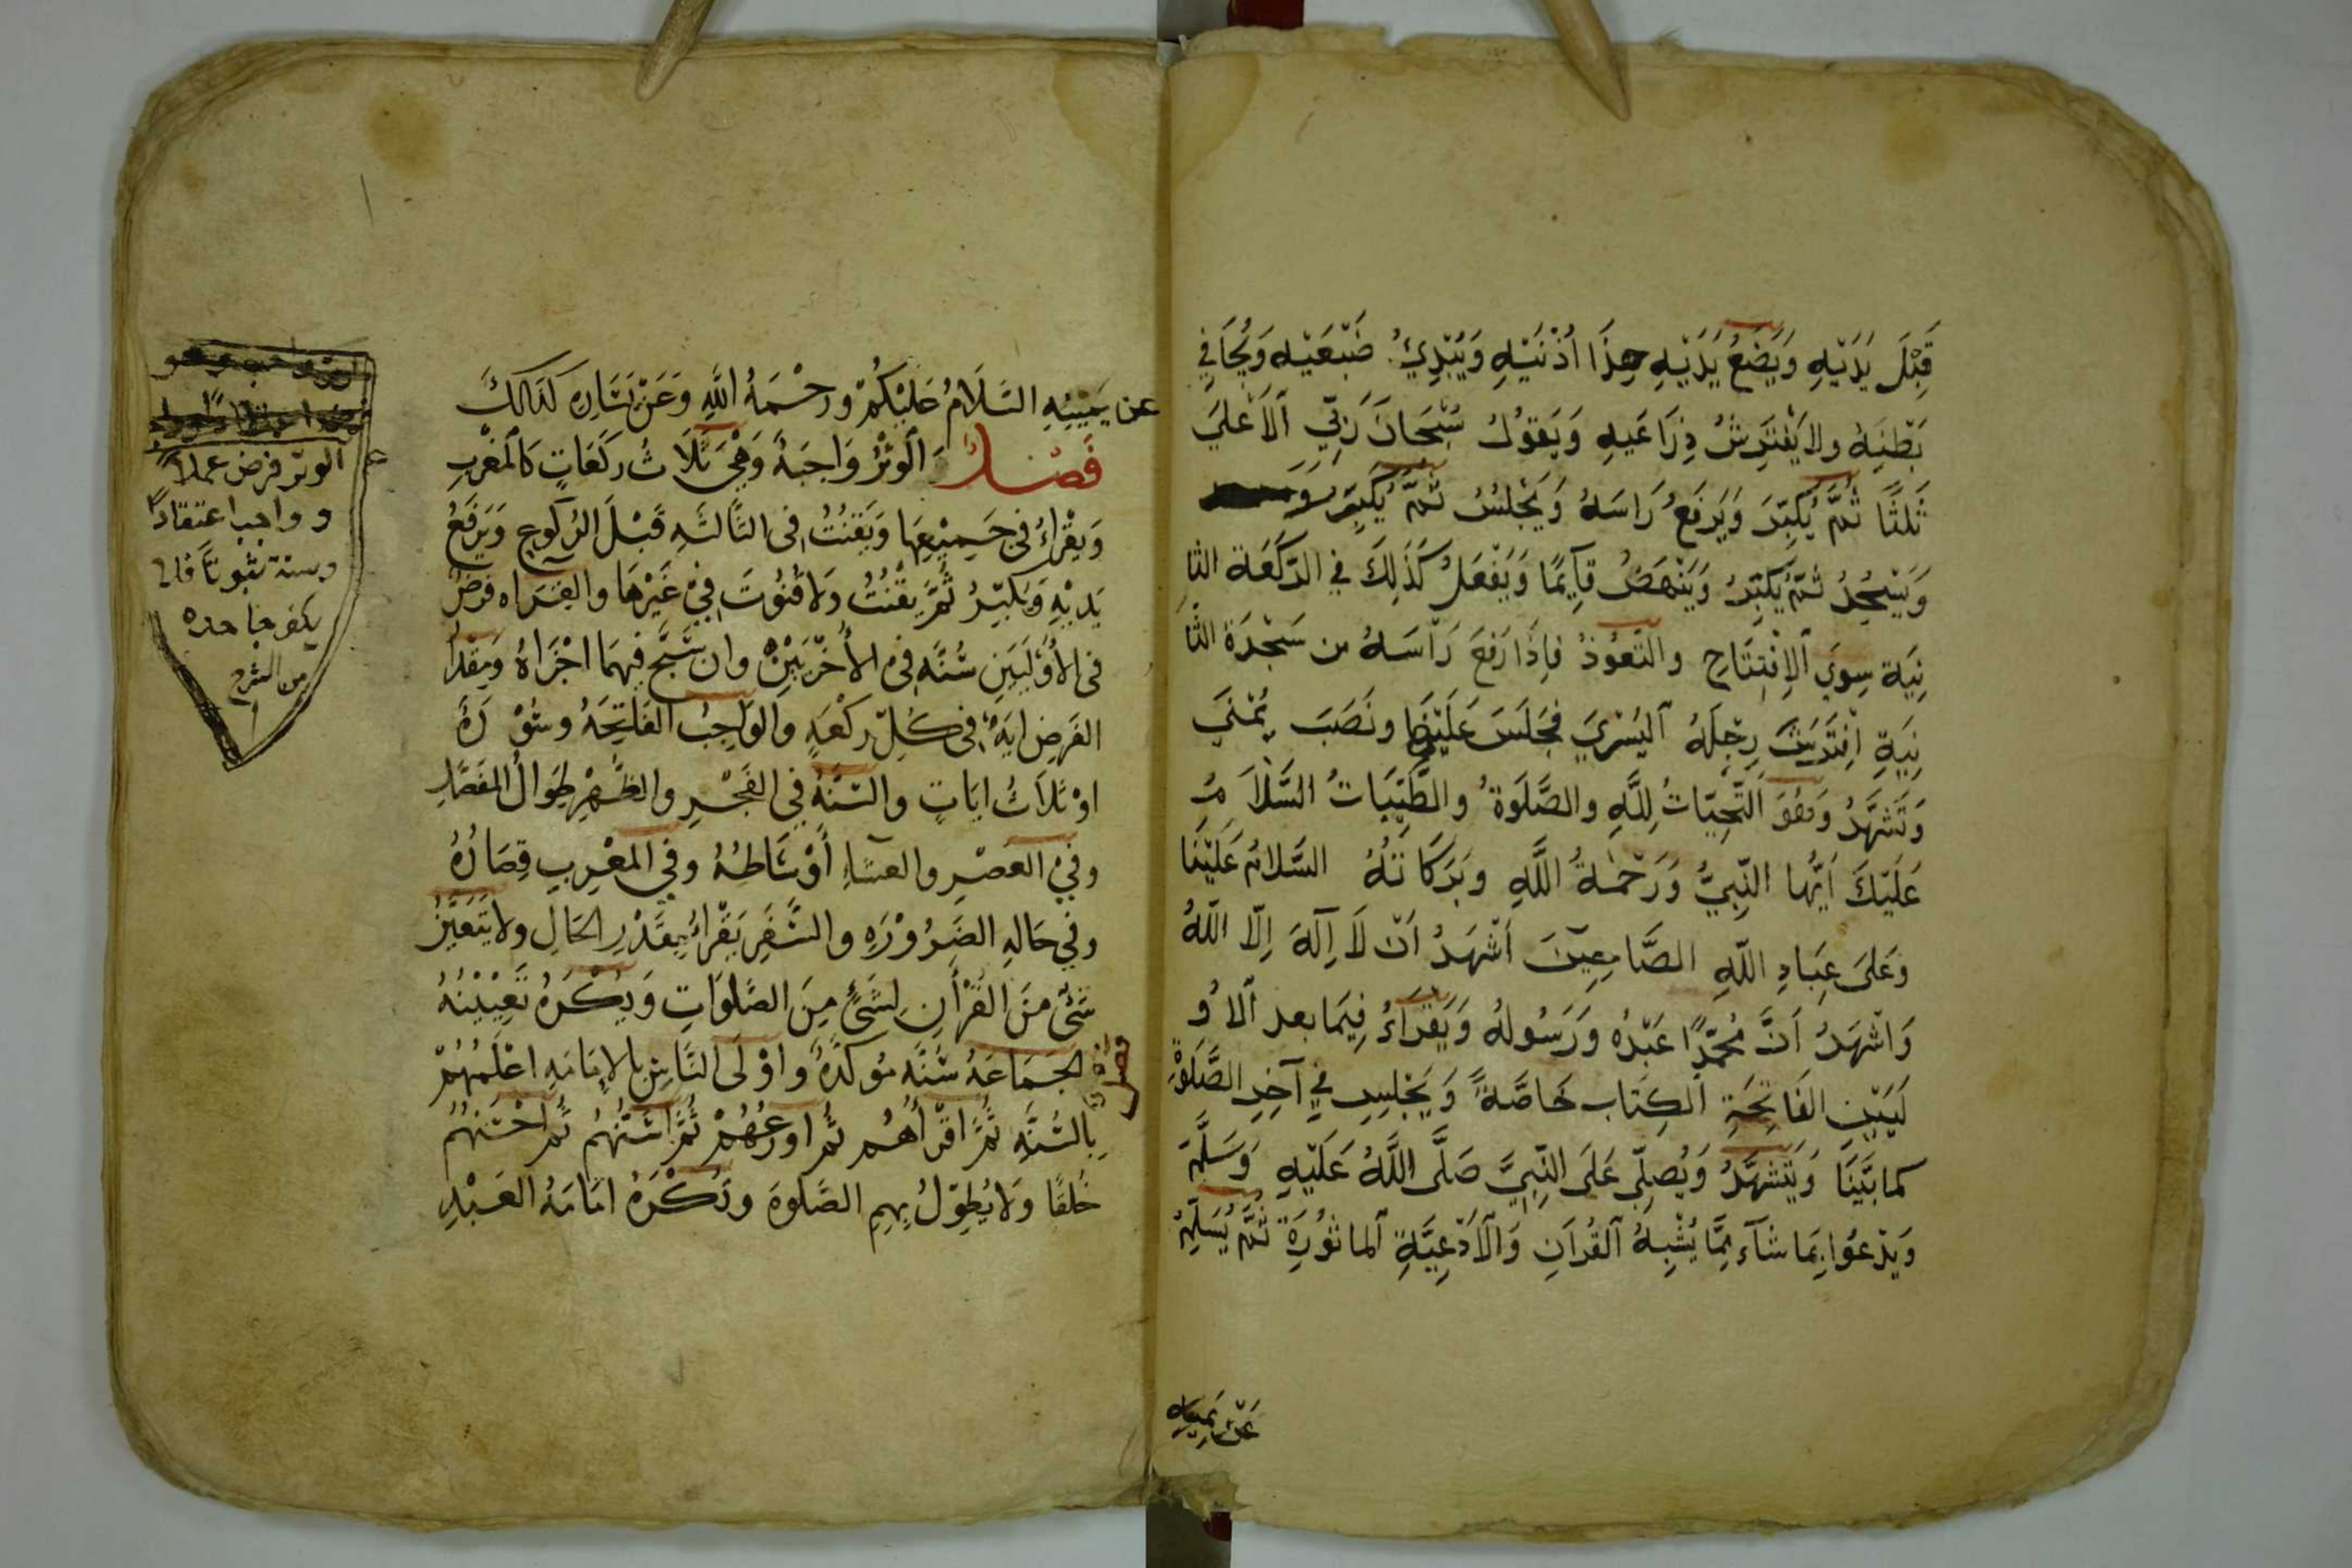 قَبْلَ يَدَيْهِ وَيَضَعُ يَدَيْهِ حِذَا اُذْنَيْهِ وَيُبْدِيُ ضَبْعَيْهِ وَيُجَافِي
بَطْنَهُ ولا يَفْتَرِشُ ذِرَاعَيهِ وَيَقوُلُ سُبْحَانَ رَبّيَ اَلاَعْليَ
ثَلثًا ثُمَّ يُكَبِّرَ وَيَرفَعُ رَاسَهُ وَيَجْلِسُ ثُمَّ يُكَبِّرَ
وَيَسْجُدُ ثُمَّ يُكَبِّرُ وَيَنْهَضُ قآيِمًا وَيَفْعَلُ كَذَلِكَ في الرَّكعَة الثا
نِيَة سِويَ اَلاِفْتِتَاحِ والتَعوُّذ فاِذَا رَفعَ رَاْسَهُ من سَجْدَة الثَا
نِيَةِ اِفْتَرَشَ رِجْلَهُ اَليُسْرَيَ فجَلَسَ عَلَيْهَا ونَصَبَ يُمْنَيَ
وَتَشَهَّدُ وَهُوَ اَلتَّحِيّاتُ لِلَّهِ والصَّلَوَةُ والطَّيِّبَاتُ السَّلاَمُ
عَلَيْكَ اَيُّها النَّبِيُّ وَرَحْمَةُ اللَّهِ وبَرَكَاتُهُ السَّلامُ عَلَيْنَا
وَعَلىَ عِبَادِ اللّهِ الصَّامِعِينَ اَشْهَدُ اَنْ لاَ اِلَهَ اِلّا اللّهُ
وَاَشْهَدُ اَنَّ مُحَمّدًا عَبْدُه وَرَسُولهُ وَيَقرَاءُ فِيمَا بعد اَلاُو
لَيَيْنِ الفَاتِحَةِ اَلكِتَاب خَاصَّةً وَيَجْلِسِ في آخِرِ الصَّلوَةِ
كما بَيَّنَا وَيَتَشَهَّدُ وَيُصلِّي عَلَى النَّبِيَّ صَلَّى اللَّهُ عَلَيْهِ وَسَلَّمَ
وَيَدْعُوا بِمَا شآءَ مِمَّا يُشْبِهُ اَلقُرآنِ وَاَلاَدْعِيَّةِ اَلماثوُرَةِ ثُمَّ يُسَلِّمُ
عَنْ يَمِينِهِ
عن يَمِيْنِهِ السَّلَامُ عَلَيْكُمْ ورحْمَةُ اللَّهِ وَعَنْ يَسَارِهِ كَذَالكَ
فَصْلٌ اَلوَتْرُ وَاجِبَةً وَهْيَ ثَلَاثُ رَكَعَاتٍ كَالمَغْربِ
وَيقْرَاءُ في جَمِيْعِهَا وَيَقْنُتُ في الثَّالثَهِ قَبْلَ الرُّكوعِ وَيَرفَعُ
يَدَيْهِ وَيُكَبِّرُ ثُمَّ يَقْنُتُ وَلا قُنُوتَ فِيْ غَيْرهَا والقِرَاه فرضٌ
في الأُوْلَيَيَنِ سُنَّه في الأُخْرَيَيْنِ وان سَبَّح فيهمَا اجْزَاهُ ومِقْدَارُ
الفَرضِ ايَةٌ في كُلّ رَكْعَةٍ والوَاجِبُ الفَاتِحَةُ وسُوْرَةً
اوْ ثَلَاثُ ايَاتٍ والسُّنَّهُ في الفَجْرِ والظُّهْرِ طِوَالُ المُفَصَّلِ
وفيْ العَصْرِ والعشَاءِ أَوْسَاطهُ وفي المَغْرِبِ قِصَارُهُ
وفي حَالهِ الضَرُوْرَهِ والسَّفَرِ يَقْرَاءُ بِقَدْرِ الحَالِ ولا يَتَعَيَّنُ
شَيْ منَ القُرْأنِ لِشَيْءٍ مِنَ الصَّلوَاتِ وَيُكْرَهُ تَعِيْيْنُهُ
فصل الجَمَاعَهُ سُنَّه موكدَّةٌ واوْلَى النَّاسِ بالامَامَهِ اعْلَمُهُمْ
بِالسُّنَّهِ ثُمَّ اقْرَأهُم ثُمَّ اورعُهُمْ ثُمَّ اسَنُّهُم ثُمَّ احْسَنهُمْ
خُلقًا وَلا يُطوّلُ بِهِم الصَّلوةَ وَيُكْرَهُ امَامَهُ العَبْدِ
الوتر فرض عملاً
وواجب اعتقادًا
وسنة ثبوتًا فلا
يكفر جاحده
من الشرح